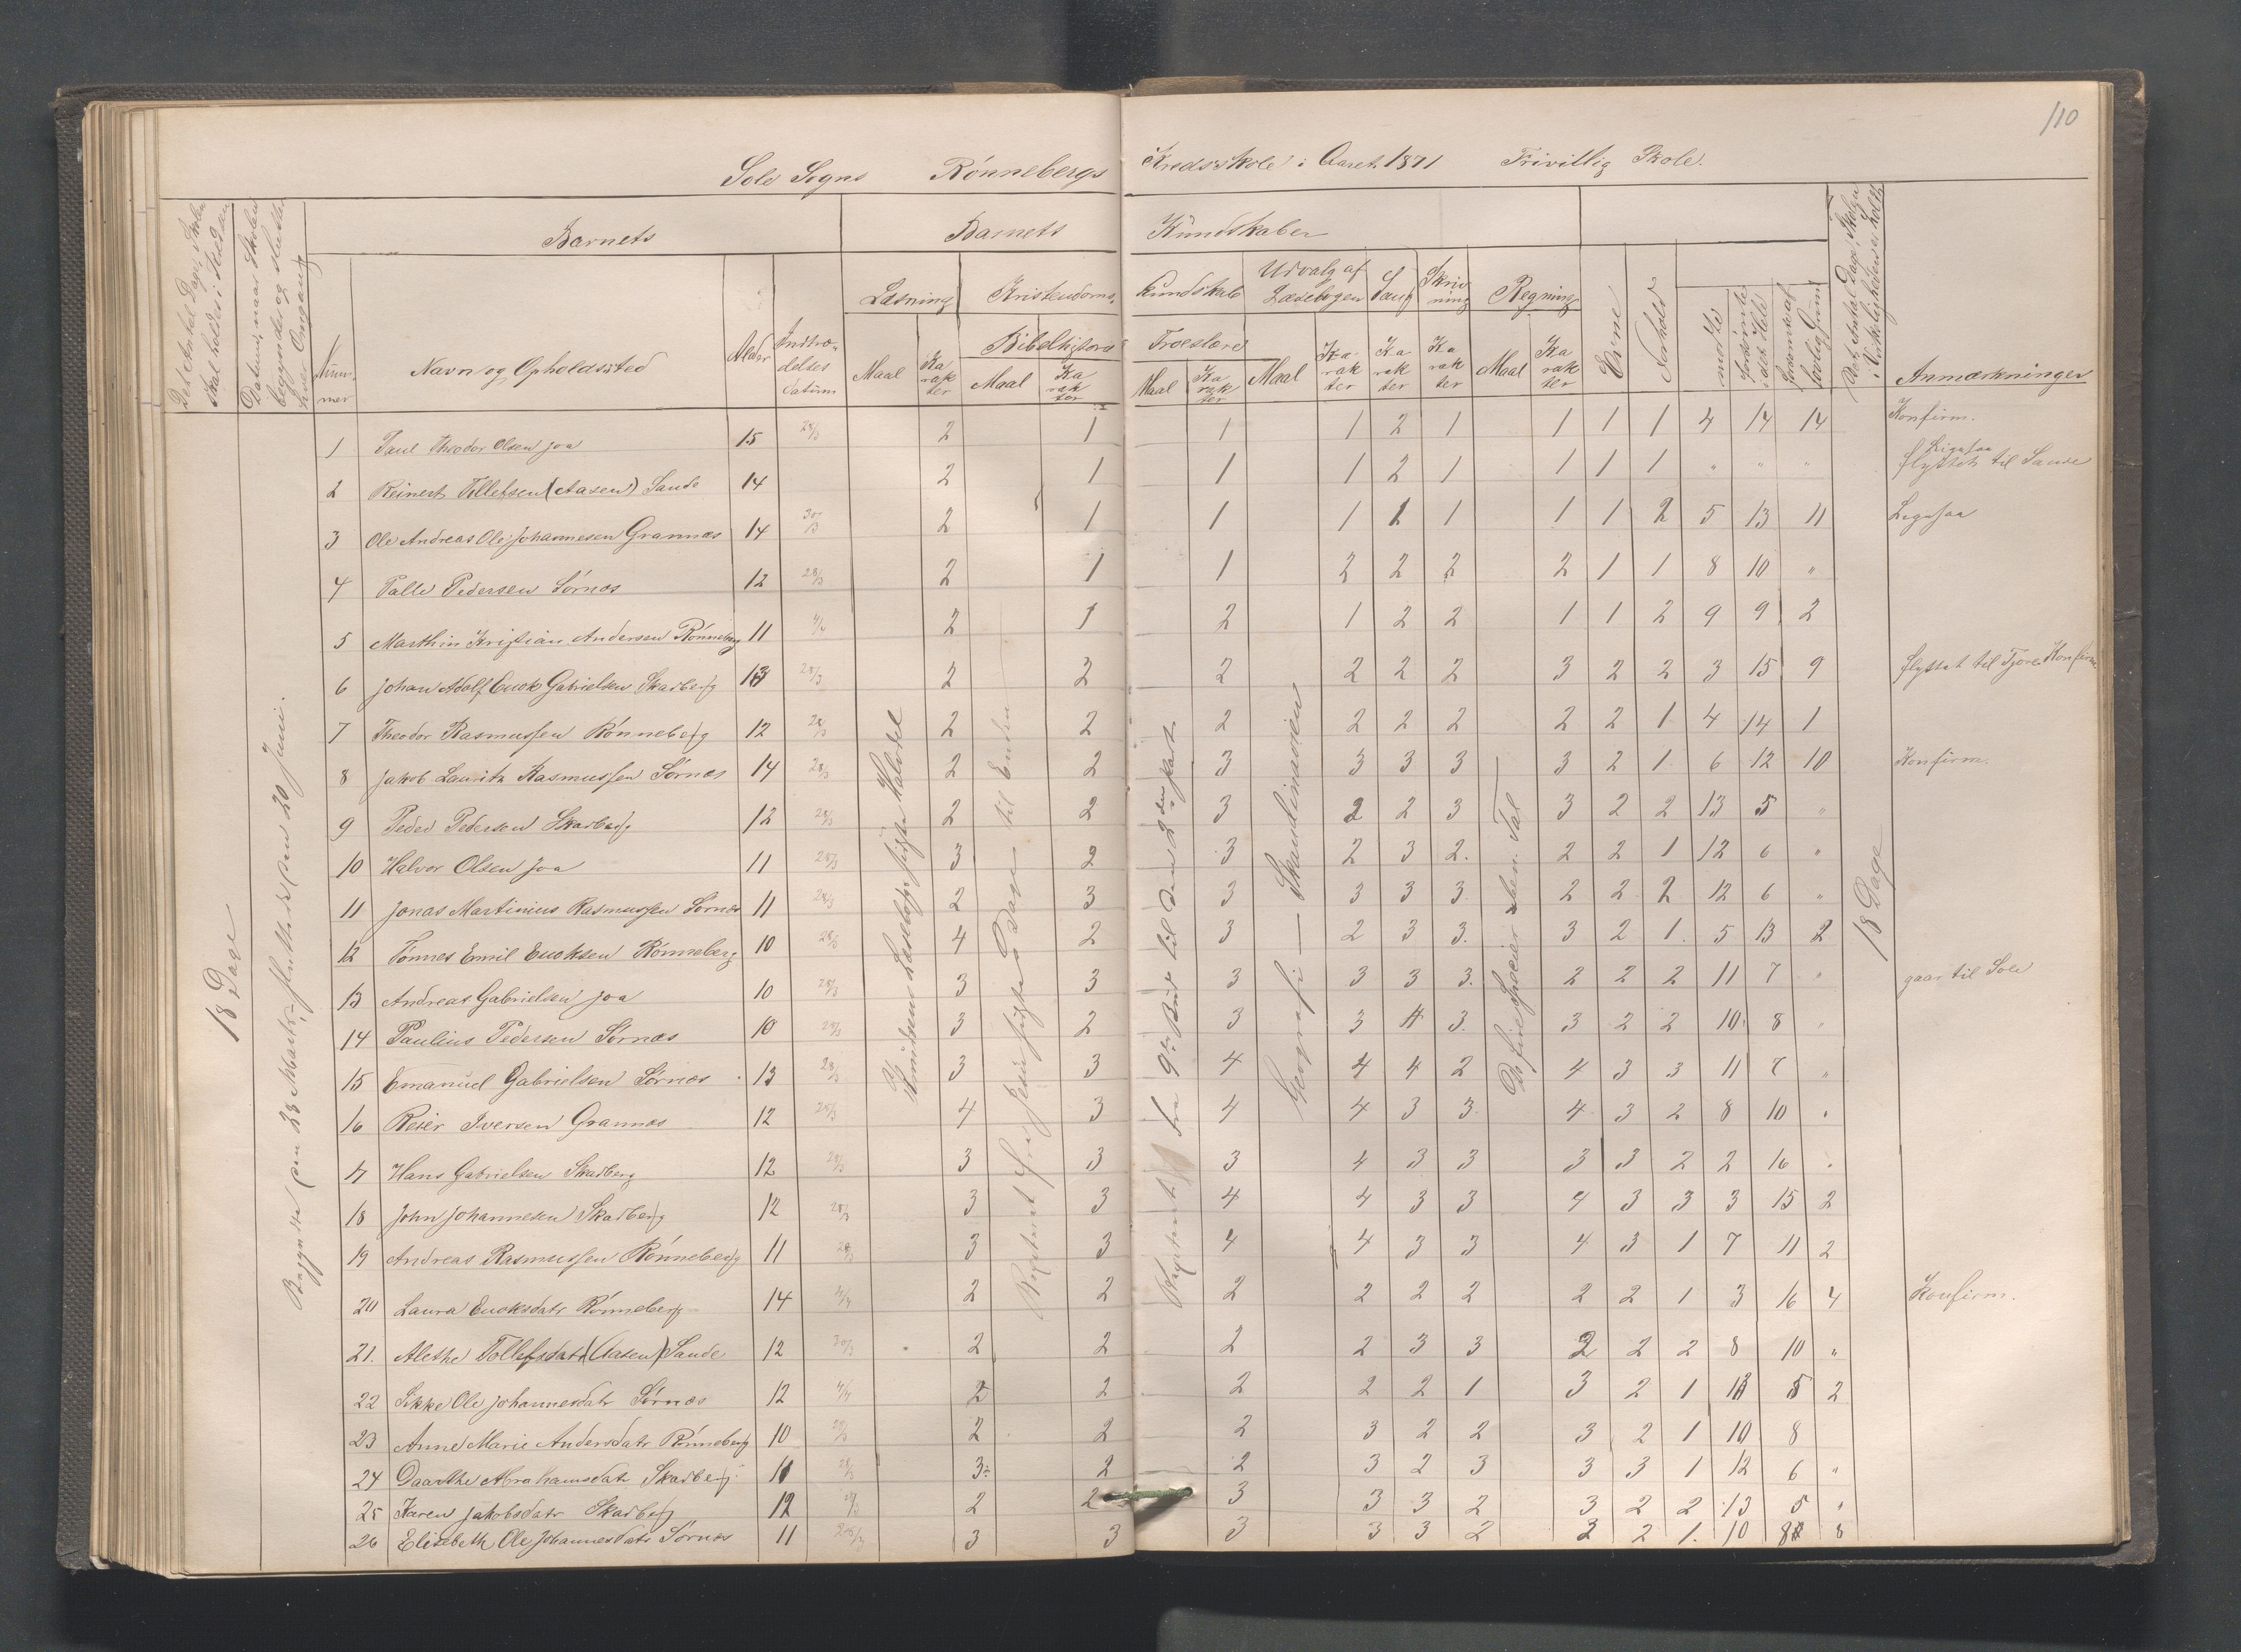 110
Sole Sogns Rønnebergs Kredsskole i Aaret 1871 Frivillig Skole.
Det Antal Dage, Skolen skal holdes i Kredsen
Datum, naar Skolen begynder og slutter hver Omgang
Barnets
Barnets Kundskaber
Læsning Kristendoms kundskab Udvalg af Læsebogen Sang Skrivning Regning
Bibelhistorie Troeslære
Nummer Navn og Opholdssted Alder Indtrædelses Datum Maal Karakter Maal Karakter Maal Karakter Maal Karakter Karakter Karakter Maal Karakter Evne Forhold mødte forsømte i det Hele forsømt af lovlig Grund
Det Antal Dage, Skolen i Virkeligheden er holdt
Anmærkninger
18 Dage
Begyndte den 28 Marts, sluttede den 20 Juni.
1 Paul Theodor Olsen Joa 15 28/3 2 1 1 1 2 1 1 1 1 4 14 14 Konfirm.
2 Reinert Tollefsen (Aasen) Sande 14 2 1 1 1 2 1 1 1 1 " " " Ligesaa flyttet til Sande
3 Ole Andreas Ole Johannesen Grannæs 14 30/3 2 1 1 1 1 1 1 1 2 5 13 11 Ligesaa
4 Palle Pedersen Sørnæs 12 28/3 2 1 1 2 2 2 2 1 1 8 10 "
5 Marthin Kristian Andersen Rønneberg 11 2 1 2 1 2 2 1 1 2 9 9 2
6 Johan Adolf Enok Gabrielsen Skadberg 13 28/3 2 2 2 2 2 2 3 2 2 3 15 9 flyttet til Tjore Konfirm.
7 Theodor Rasmussen Rønneberg 12 28/3 2 2 2 2 2 2 2 2 1 4 14 1
8 Jakob Lauritz Rasmussen Sørnæs 14 28/3 2 2 3 3 3 3 3 2 1 6 12 10 Konfirm.
9 Peder Pedersen Skadberg 12 28/3 2 2 3 2 2 3 3 2 2 13 5 "
10 Halvor Olsen Joa 11 28/3 3 2 3 2 3 2 2 2 1 12 6 "
11 Jonas Martinius Rasmussen Sørnæs 11 28/3 2 3 3 3 3 3 2 2 2 12 6 "
12 Tønnes Emil Enoksen Rønneberg 10 28/3 4 2 3 2 3 3 3 2 1 5 13 2
13 Andreas Gabrielsen Joa 10 28/3 3 3 3 3 3 3 2 2 2 11 7 " gaar til Sole
14 Paulius Pedersen Sørnæs 10 28/3 3 2 3 3 4 3 3 2 2 10 8 "
15 Emanuel Gabrielsen Sørnæs 13 28/3 3 3 4 4 4 2 4 3 3 11 7 "
16 Reier Iversen Grannæs 12 28/3 4 3 4 4 3 3 4 3 2 8 10 "
17 Hans Gabrielsen Skadberg 12 28/3 3 3 3 4 3 3 3 3 2 2 16 "
18 John Johannesen Skadberg 12 28/3 3 3 4 4 3 3 4 3 3 3 15 2
19 Andreas Rasmussen Rønneberg 11 28/3 3 3 4 4 3 3 4 3 1 7 11 2
20 Laura Enoksdatr Rønneberg 14 4/4 2 2 2 2 2 2 2 2 1 3 16 4 Konfirm.
21. Alethe Tollefsdatr (Aasen) Sande 12 30/3 2 2 2 2 3 3 2 2 2 8 10 "
22 Sikke Ole Johannesdatr Sørnæs 12 4/4 2 2 2 2 2 1 3 2 1 13 5 2
23 Anne Marie Andersdatr Rønneberg 10 28/3 2 2 2 3 2 2 3 2 1 10 8
24 Daarthe Abrahamsdatr Skadberg 11 28/3 3 2 2 3 2 3 3 3 1 12 6 "
25 Karen Jakobsdatr Skadberg 12 28/3 2 2 3 3 3 2 3 2 2 13 5 "
26 Elisebeth Ole Johannesdatr Sørnæs 11 28/3 3 3 3 3 3 2 2 2 1. 10 8 8
Jesu sidste Dage til Enden
fra 9de Bud til Den 2den Part
Geografi — Skandinavien
De fire Specier
18 Dage